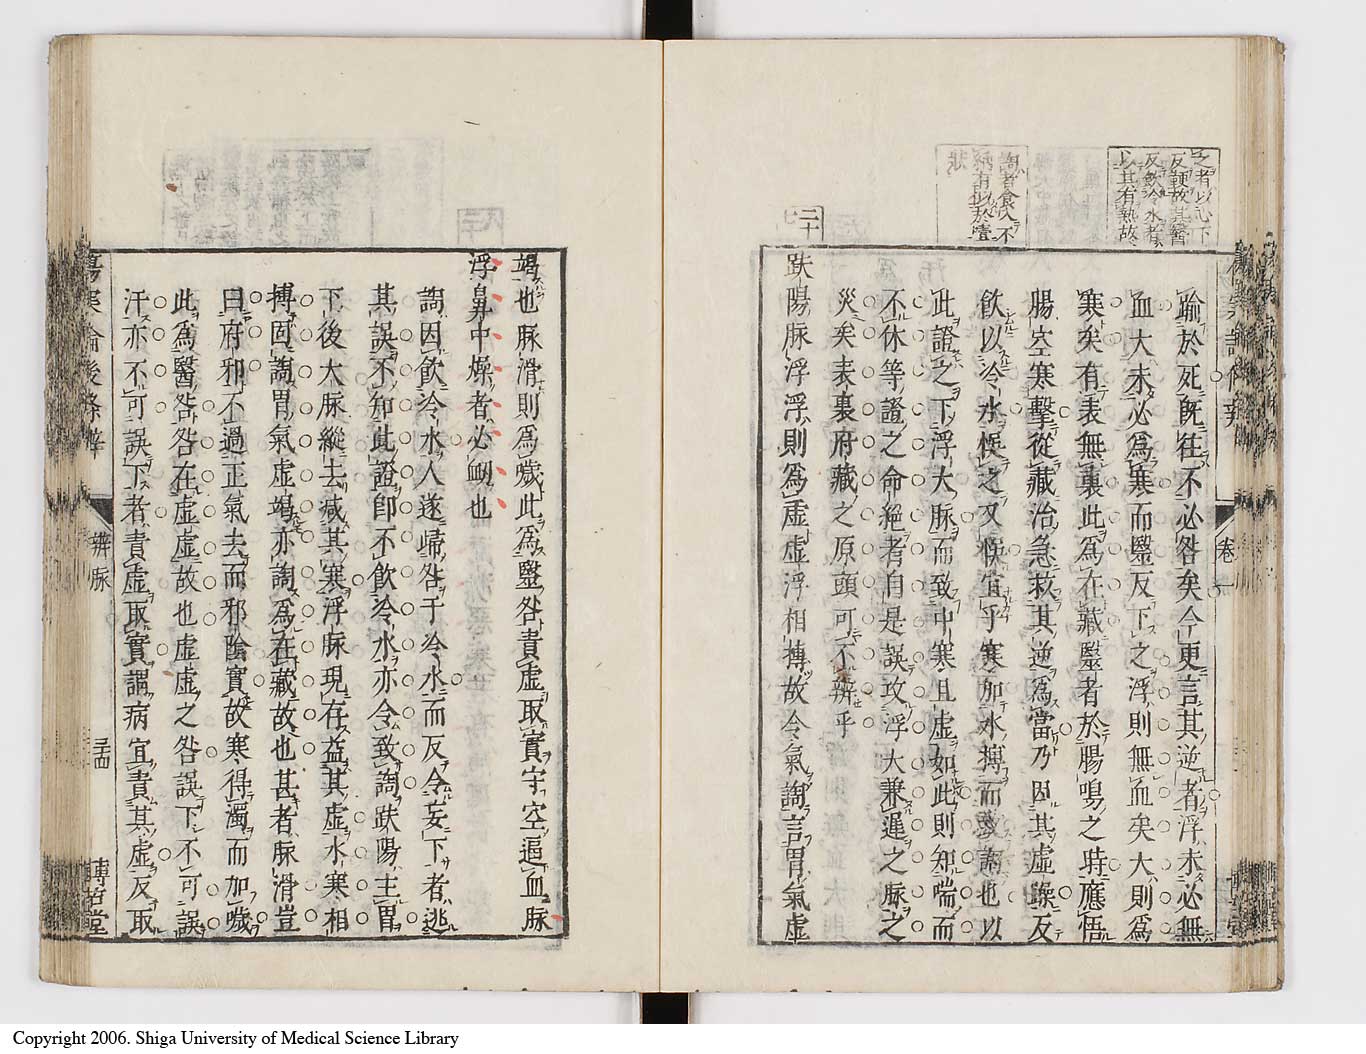 之者以心下
反硬故其醫
反飲冷水者
以其有熱故
二十
七
踰於死既往不必咎矣今更言其逆者浮未必無
血大未必為寒而醫反下之浮則無血矣大則為
寒矣有表無裏此為在藏醫者於腸鳴之時應悟
腸空寒擊從藏治急救其逆為當乃因其虛躁反
飲以冷水悞之又悞宜乎寒加水摶而發噎也以
此證之下浮大脈而致中寒且虛如此則知喘而
不休等證之命絕者自是誤攻浮大兼遲之脈之
災矣表裏府藏之原頭可不辨乎
趺陽脈浮浮則為虛虛浮相搏故令氣䭇言胃氣虛
卷
竭也脈滑則為噦此為醫咎責虛取實守空逼血脈
浮鼻中燥者必衄也
䭇因飲冷水人遂歸咎于冷水而反令妄下者逃
其誤不知此證卽不飲冷水亦令致䭇趺陽主胃
下後大脈縱去減其寒浮脈現存益其虛水寒相
搏固䭇胃氣虛竭亦䭇為在藏故也甚者脈滑豈
曰府邪不過正氣去而邪陰實故寒得濁而加噦
此為醫咎咎在虛虛故也虛虛之咎誤下不可誤
汗亦不可誤下者責虛取實謂病宜責其虛反取
傷寒論後條辨
辨脈
三十四
博古堂